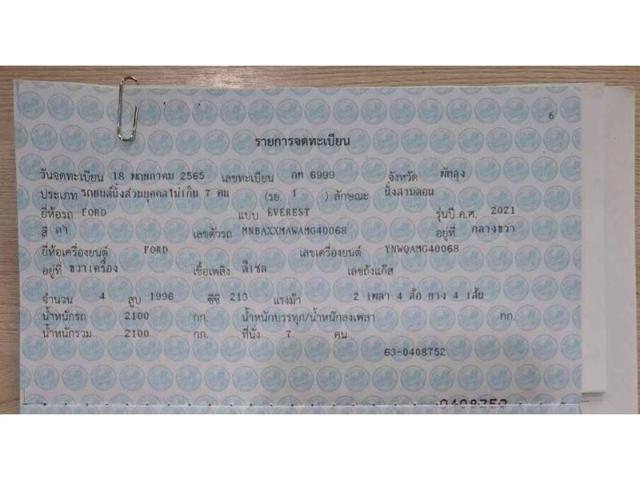 6
รายการจดทะเบียน
วันจดทะเบียน 18 พฤษภาคม 2565 เลขทะเบียน กท 6999 จังหวัด พัทลุง
ประเภท รถยนต์นั่งส่วนบุคคลไม่เกิน 7 คน (รย. 1 ) ลักษณะ นั่งสามตอน
ยี่ห้อรถ FORD แบบ EVEREST รุ่นปี ค.ศ. 2021
สี ดำ เลขตัวรถ MNBAXXMAWAMG40068 อยู่ที่ กลางขวา
ยี่ห้อเครื่องยนต์ FORD เลขเครื่องยนต์ YNWQAMG40068
อยู่ที่ ขวาเครื่อง เชื้อเพลิง ดีเซล เลขถังแก๊ส
จำนวน 4 สูบ 1996 ซีซี 213 แรงม้า 2 เพลา 4 ล้อ ยาง 4 เส้น
น้ำหนักรถ 2100 กก. น้ำหนักบรรทุก/น้ำหนักลงเพลา กก.
น้ำหนักรวม 2100 กก. ที่นั่ง 7 คน
63-0408752